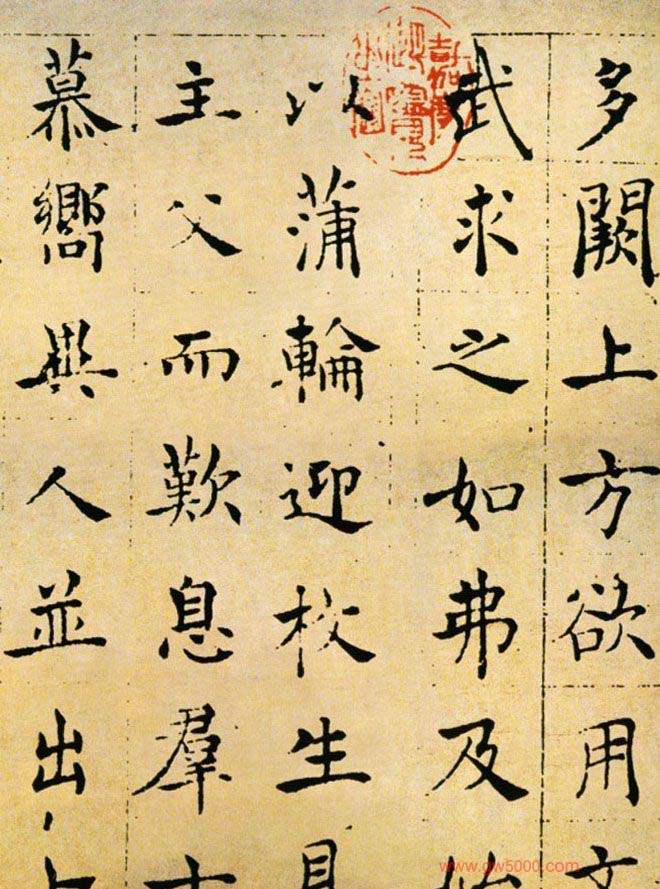 多闕上方欲用文
武求之如弗及始
以蒲輪迎枚生見
主父而歎息羣士
慕嚮異人並出卜